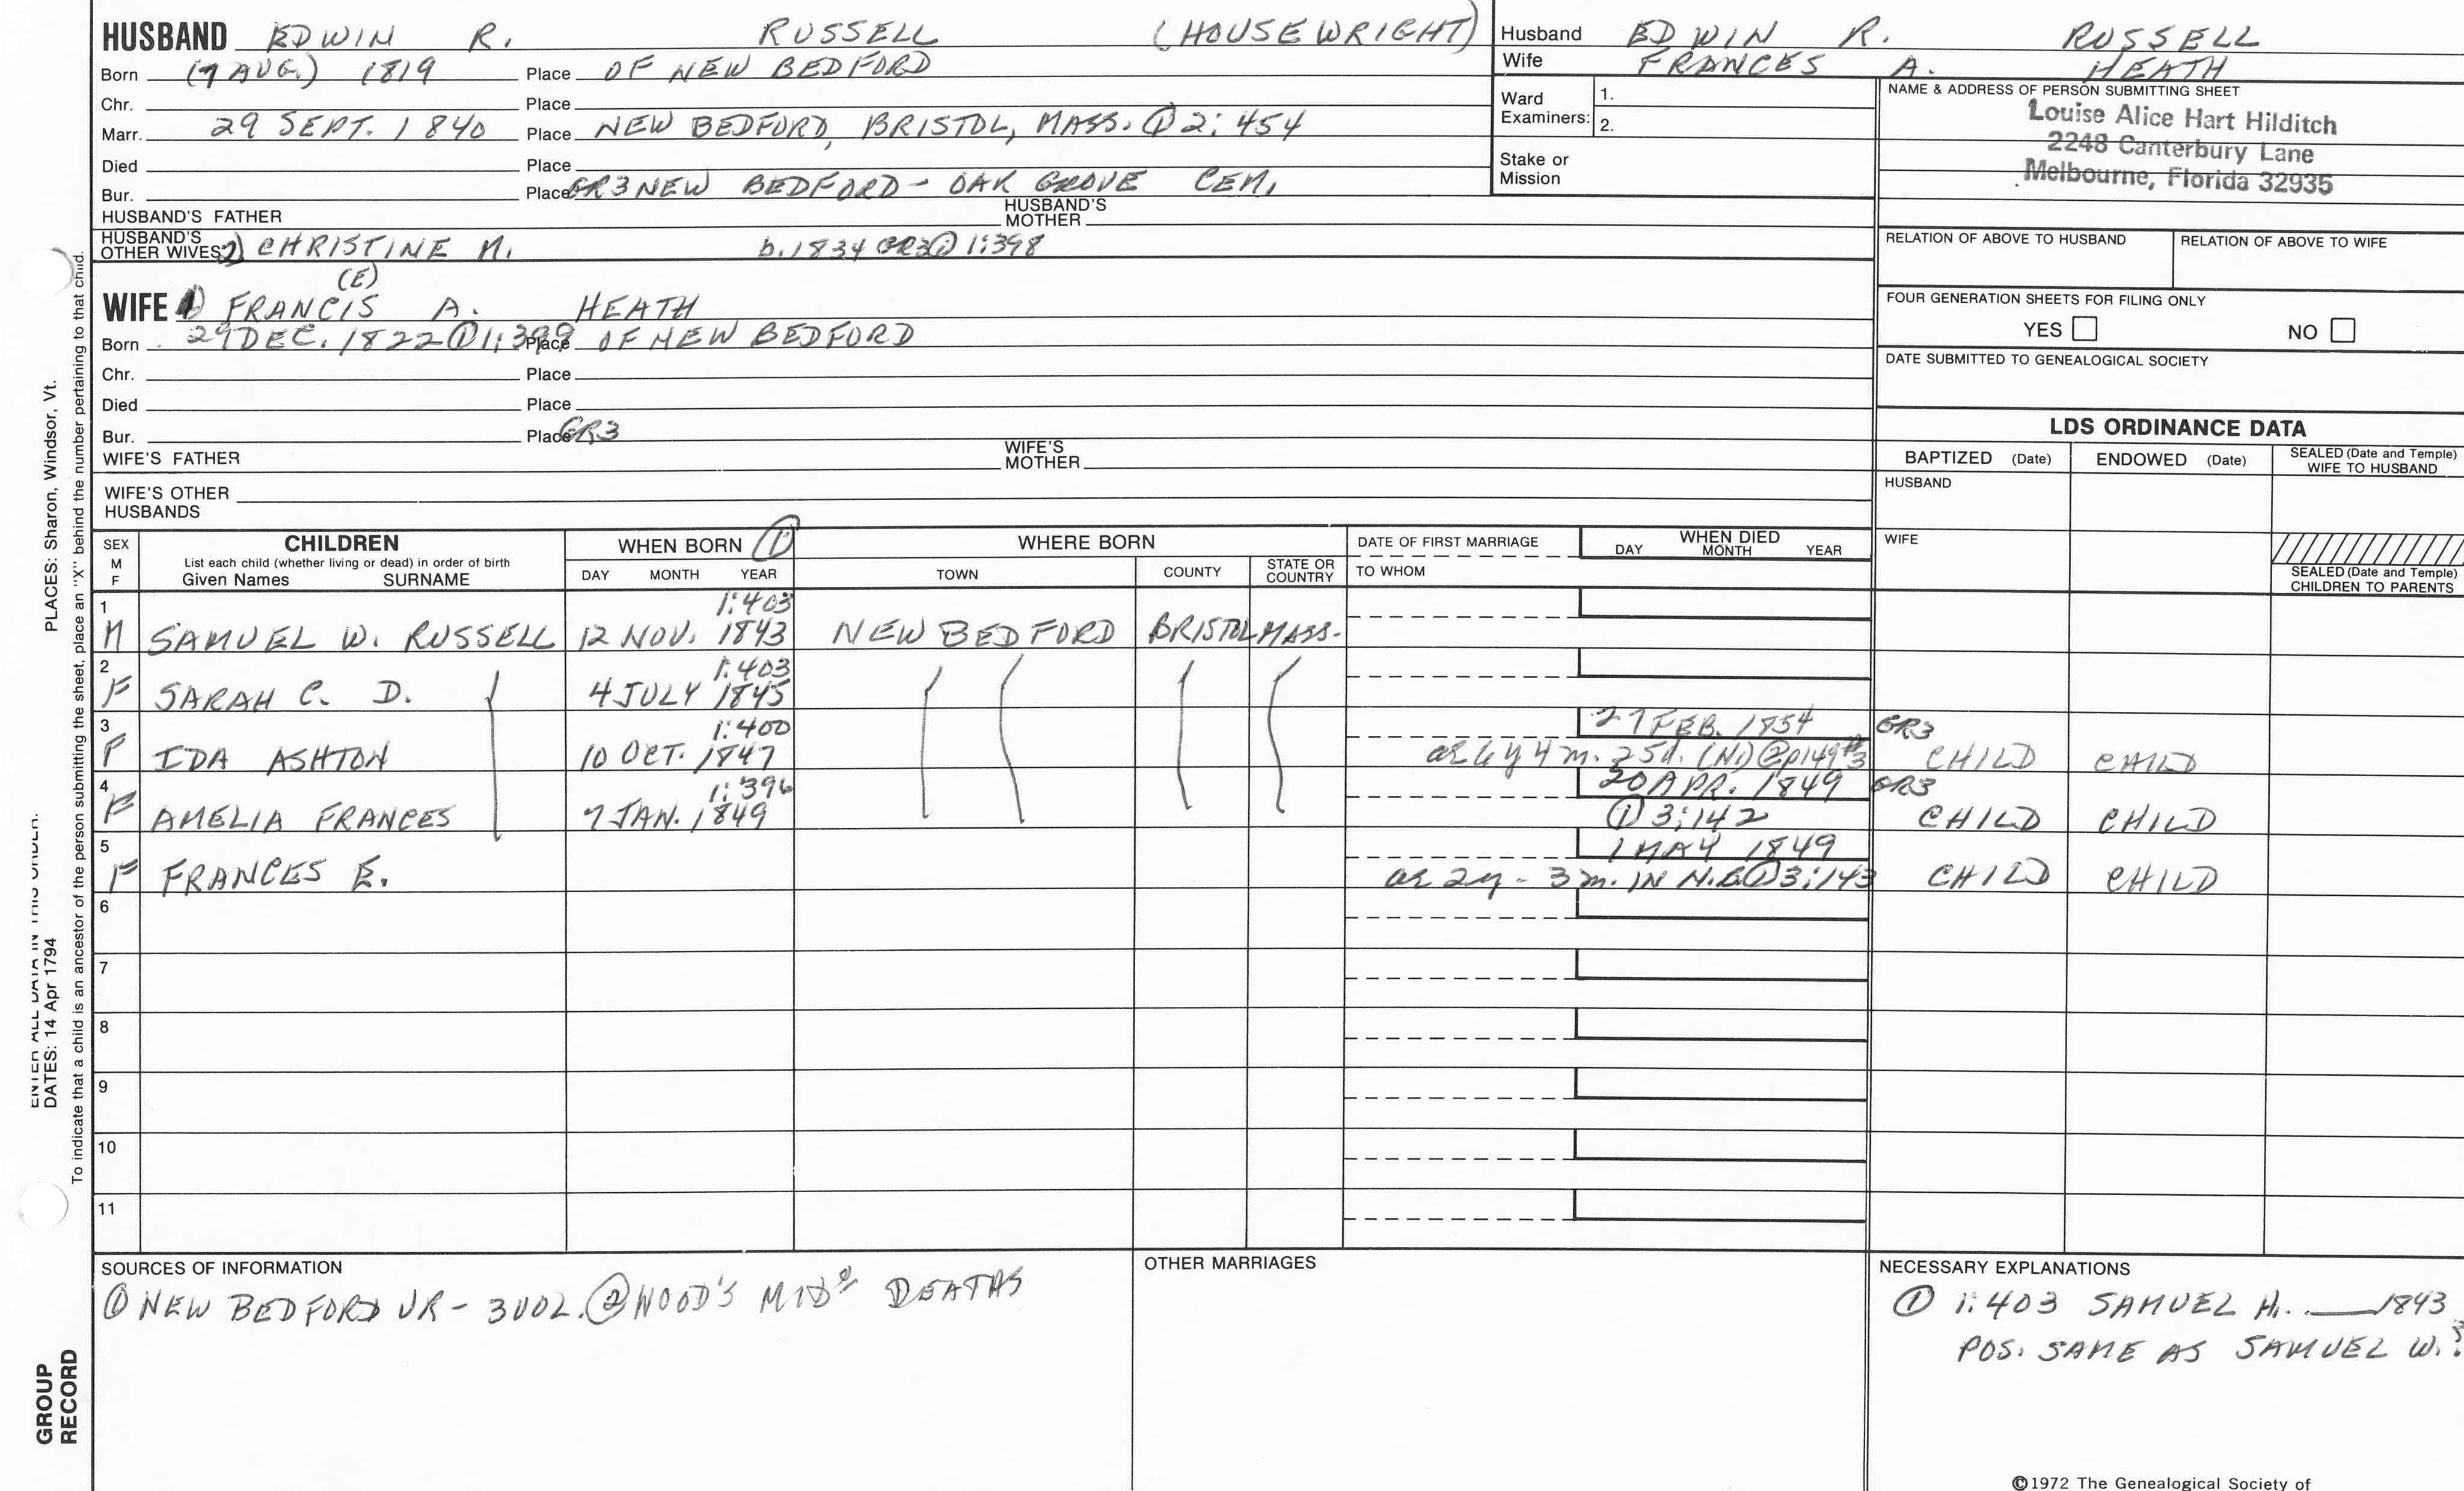 HUSBAND EDWIN R. RUSSELL (HOUSEWRIGHT)
Born (7 AUG.) 1819 Place OF NEW BEDFORD
Chr. Place
Marr. 29 SEPT. 1840 Place NEW BEDFORD, BRISTOL, MASS. ① 2:454
Died Place
Bur. Place GR3 NEW BEDFORD - OAK GROVE CEM.
HUSBAND'S FATHER HUSBAND'S MOTHER
HUSBAND'S OTHER WIVES 2) CHRISTINE M. b. 1834 GR3 ① 1:398
(E)
WIFE 1 FRANCIS A. HEATH
Born 29 DEC. 1822 ① 1:399 Place OF NEW BEDFORD
Chr. Place
Died Place
Bur. Place GR3
WIFE'S FATHER WIFE'S MOTHER
WIFE'S OTHER HUSBANDS
Husband EDWIN R. RUSSELL
Wife FRANCES A. HEATH
Ward Examiners: 1.
2.
Stake or Mission
NAME & ADDRESS OF PERSON SUBMITTING SHEET
Louise Alice Hart Hilditch
2248 Canterbury Lane
Melbourne, Florida 32935
RELATION OF ABOVE TO HUSBAND RELATION OF ABOVE TO WIFE
FOUR GENERATION SHEETS FOR FILING ONLY
YES NO
DATE SUBMITTED TO GENEALOGICAL SOCIETY
LDS ORDINANCE DATA
BAPTIZED (Date) ENDOWED (Date) SEALED (Date and Temple) WIFE TO HUSBAND
HUSBAND
WIFE
SEALED (Date and Temple) CHILDREN TO PARENTS
SEX M F
CHILDREN
List each child (whether living or dead) in order of birth
Given Names SURNAME
WHEN BORN ①
DAY MONTH YEAR
WHERE BORN
TOWN COUNTY STATE OR COUNTRY
DATE OF FIRST MARRIAGE
TO WHOM
WHEN DIED
DAY MONTH YEAR
1 1:403
M SAMUEL W. RUSSELL 12 NOV. 1843 NEW BEDFORD BRISTOL MASS.
2 1:403
F SARAH C. D. 4 JULY 1845
3 1:400 27 FEB. 1854 GR3
F IDA ASHTON 10 OCT. 1847 ae 6 y 4 m. 25d. (NI) ② p149#3 CHILD CHILD
4 1:396 20 APR. 1849 GR3
F AMELIA FRANCES 7 JAN. 1849 ① 3:142 CHILD CHILD
5 1 MAY 1849
F FRANCES E. ae 2y - 3 m. IN N.B. ① 3:143 CHILD CHILD
6
7
8
9
10
11
SOURCES OF INFORMATION
① NEW BEDFORD VR - 3 VOL. ② WOOD'S DEATHS
OTHER MARRIAGES
NECESSARY EXPLANATIONS
① 1:403 SAMUEL H. ___ 1843
POS. SAME AS SAMUEL W.?
©1972 The Genealogical Society of
PLACES: Sharon, Windsor, Vt.
ENTER ALL DATA IN THIS ORDER:
DATES: 14 Apr 1794
To indicate that a child is an ancestor of the person submitting the sheet, place an "X" behind the number pertaining to that child.
GROUP RECORD